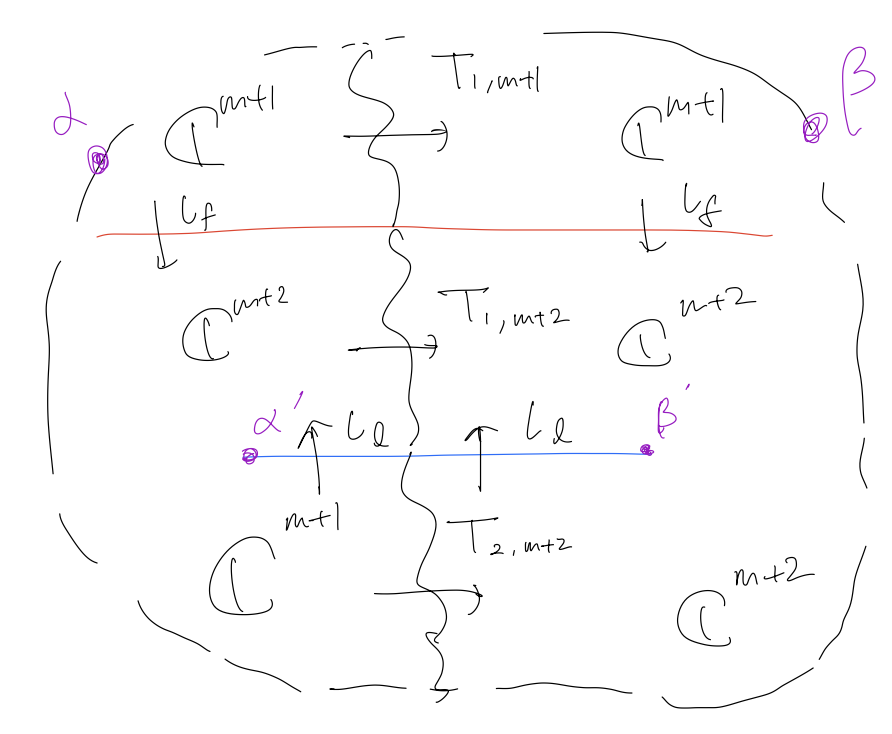 α ℂ^{m+1} T_{1,m+1} ℂ^{m+1} β
ι_f ι_f
ℂ^{m+2} T_{1,m+2} ℂ^{m+2}
α' ι_l ι_l β'
ℂ^{m+1} T_{2,m+2} ℂ^{m+2}